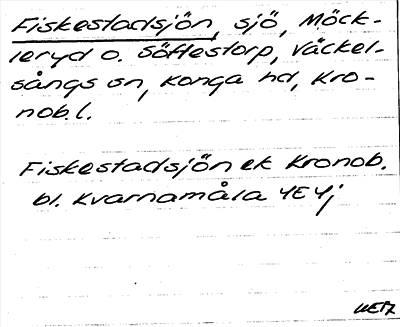 Fiskestadsjön, sjö, Möck-
leryd o. Söftestorp, Väckel-
sångs sn, Konga hd, Kro-
nob. l.
Fiskestadsjön ek Kronob.
bl. Kvarnamåla 4E4j